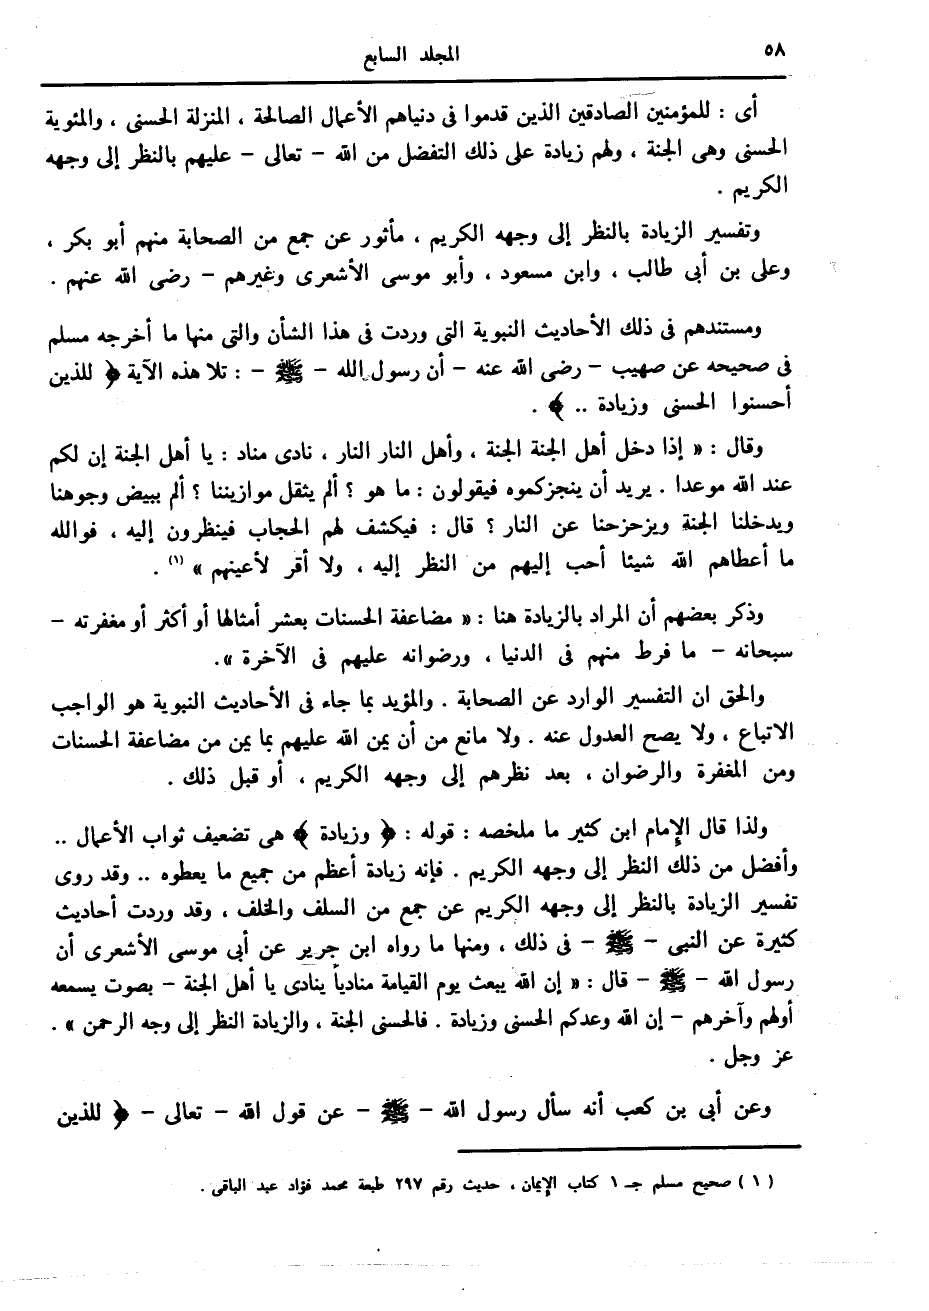 ٥٨
المجلد السابع
أى : للمؤمنين الصادقين الذين قدموا فى دنياهم الأعمال الصالحة ، المنزلة الحسنى ، والمثوبة
الحسنى وهى الجنة ، ولهم زيادة على ذلك التفضل من الله – تعالى – عليهم بالنظر إلى وجهه
الكريم .
وتفسير الزيادة بالنظر إلى وجهه الكريم ، مأثور عن جمع من الصحابة منهم أبو بكر ،
وعلى بن أبى طالب ، وابن مسعود ، وأبو موسى الأشعرى وغيرهم – رضى الله عنهم .
ومستندهم فى ذلك الأحاديث النبوية التى وردت فى هذا الشأن والتى منها ما أخرجه مسلم
فى صحيحه عن صهيب – رضى الله عنه – أن رسول الله – ﷺ – : تلا هذه الآية ﴿ للذين
أحسنوا الحسنى وزيادة .. ﴾ .
وقال : « إذا دخل أهل الجنة الجنة ، وأهل النار النار ، نادى مناد : يا أهل الجنة إن لكم
عند الله موعدا . يريد أن ينجزكموه فيقولون : ما هو ؟ ألم يثقل موازيننا ؟ ألم يبيض وجوهنا
ويدخلنا الجنة ويزحزحنا عن النار ؟ قال : فيكشف لهم الحجاب فينظرون إليه ، فوالله
ما أعطاهم الله شيئا أحب إليهم من النظر إليه ، ولا أقر لأعينهم » (١) .
وذكر بعضهم أن المراد بالزيادة هنا : « مضاعفة الحسنات بعشر أمثالها أو أكثر أو مغفرته –
سبحانه – ما فرط منهم فى الدنيا ، ورضوانه عليهم فى الآخرة ».
والحق ان التفسير الوارد عن الصحابة . والمؤيد بما جاء فى الأحاديث النبوية هو الواجب
الاتباع ، ولا يصح العدول عنه . ولا مانع من أن يمن الله عليهم بما يمن من مضاعفة الحسنات
ومن المغفرة والرضوان ، بعد نظرهم إلى وجهه الكريم ، أو قبل ذلك .
ولذا قال الإمام ابن كثير ما ملخصه : قوله : ﴿ وزيادة ﴾ هى تضعيف ثواب الأعمال ..
وأفضل من ذلك النظر إلى وجهه الكريم . فإنه زيادة أعظم من جميع ما يعطوه .. وقد روى
تفسير الزيادة بالنظر إلى وجهه الكريم عن جمع من السلف والخلف ، وقد وردت أحاديث
كثيرة عن النبى – ﷺ – فى ذلك ، ومنها ما رواه ابن جرير عن أبى موسى الأشعرى أن
رسول الله – ﷺ – قال : « إن الله يبعث يوم القيامة منادياً ينادى يا أهل الجنة – بصوت يسمعه
أولهم وآخرهم – إن الله وعدكم الحسنى وزيادة . فالحسنى الجنة ، والزيادة النظر إلى وجه الرحمن » .
عز وجل .
وعن أبى بن كعب أنه سأل رسول الله – ﷺ – عن قول الله – تعالى – ﴿ للذين
( ١ ) صحيح مسلم جـ ١ كتاب الإيمان ، حديث رقم ٢٩٧ طبعة محمد فؤاد عبد الباقى .